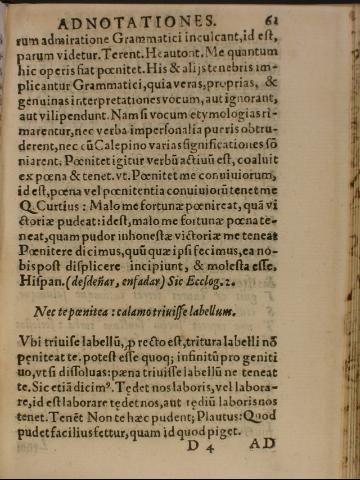 ADNOTATIONES. 61
rum admiratione Grammatici inculcant, id est,
parum videtur. Terent. Heautont. Me quantum
hic operis fiat pœnitet. His & alijs tenebris im-
plicantur Grammatici, quia veras, proprias, &
genuinas interpretationes vocum, aut ignorant,
aut vilipendunt. Nam si vocum etymologias ri-
marentur, nec verba impersonalia pueris obtru-
derent, nec cũ Calepino varias significationes sõ
niarent; Pœnitet igitur verbũ actiuũ est, coaluit
ex pœna & tenet. vt. Pœnitet me conuiuiorum,
id est, pœna vel pœnitentia conuiuiorũ tenet me
Q. Curtius: Malo me fortunæ pœnireat, quã vi
ctoriæ pudeat: id est, malo me fortunæ pœna te-
neat, quam pudor inhonestæ victoriæ me teneat
Pœnitere dicimus, quũ quæ ipsi fecimus, ea no-
bis post displicere incipiunt, & molesta esse,
Hispan. (desdeñar, enfadar) Sic Ecclog. 2.
Nec te pœnitea: calamo triuisse labellum.
Vbi triuisse labellũ, ꝓ recto est, tritura labelli nõ
pęniteat te. potest esse quoq; infinitũ pro geniti
uo, vt si dissoluas: pæna triuisse labellũ ne teneat
te. Sic etiã dicimꝰ. Tędet nos laboris, vel labora-
re, id est laborare tędet nos, aut tędiũ laboris nos
tenet. Tenẽt Non te hæc pudent; Plautus: Quod
pudet facilius fertur, quam id quod piget.
D 4 AD